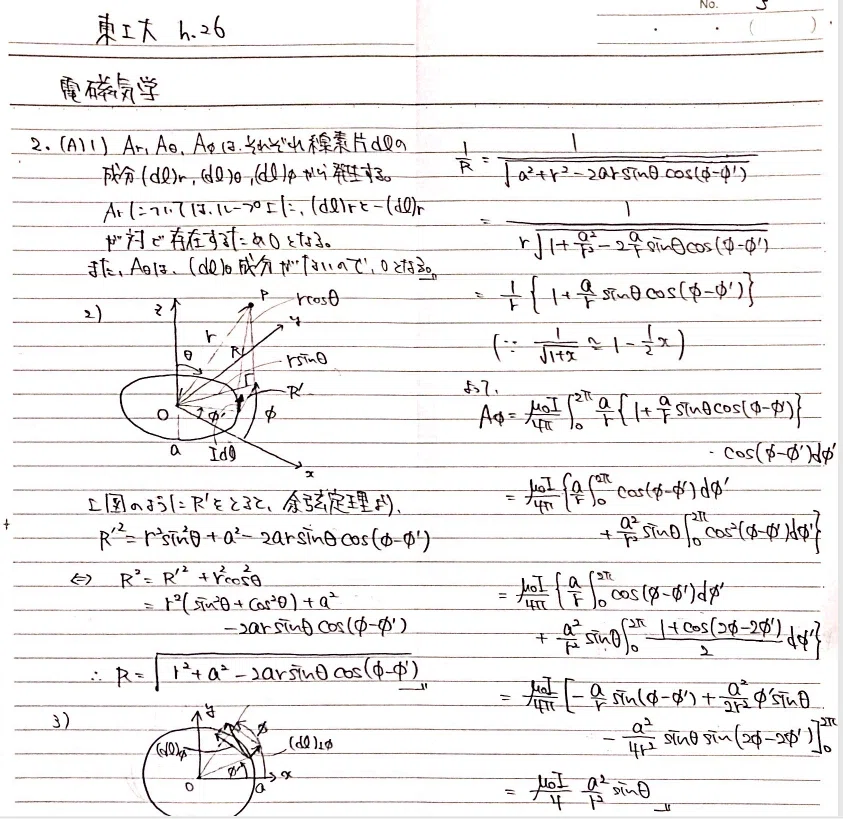 No. 5
東工大 h.26
電磁気学
2. (A) 1) Ar, Aθ, Aφは、それぞれ線素片dlの
成分(dl)r, (dl)θ, (dl)φから発生する。
Arについては、ループ上に、(dl)rと-(dl)r
が対で存在するため0となる。
また、Aθは、(dl)θ成分がないので、0となる。
2)
z
P
rcosθ
y
r
θ
R
rsinθ
R'
O
φ'
φ
a
Idl
x
上図のようにR'をとると、余弦定理より、
R'² = r²sin²θ + a² - 2arsinθcos(φ-φ')
⇔ R² = R'² + r²cos²θ
= r²(sin²θ + cos²θ) + a²
- 2arsinθcos(φ-φ')
∴ R = √(r² + a² - 2arsinθcos(φ-φ'))
3)
y
φ
(dl)φ
(dl)
φ'
O
a
x
1/R = 1/√(a² + r² - 2arsinθcos(φ-φ'))
= 1/(r√(1 + a²/r² - 2(a/r)sinθcos(φ-φ')))
= 1/r {1 + a/r sinθcos(φ-φ')}
(∵ 1/√(1+x) ≃ 1 - 1/2 x)
よって、
Aφ = μ₀I/4π ∫₀^2π a/r {1 + a/r sinθcos(φ-φ')}
· cos(φ-φ')dφ'
= μ₀I/4π {a/r ∫₀^2π cos(φ-φ')dφ'
+ a²/r² sinθ ∫₀^2π cos²(φ-φ')dφ'}
= μ₀I/4π {a/r ∫₀^2π cos(φ-φ')dφ'
+ a²/r² sinθ ∫₀^2π (1+cos(2φ-2φ'))/2 dφ'}
= μ₀I/4π [-a/r sin(φ-φ') + a²/2r² φ'sinθ
- a²/4r² sinθ sin(2φ-2φ')]₀^2π
= μ₀I/4 a²/r² sinθ